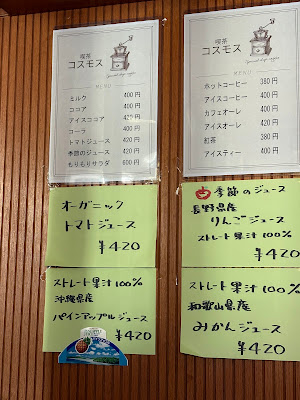 喫茶
コスモス
MENU
ミルク 400円
ココア 400円
アイスココア 420円
コーラ 400円
トマトジュース 420円
季節のジュース 420円
もりもりサラダ 600円
喫茶
コスモス
MENU
ホットコーヒー 380円
アイスコーヒー 400円
カフェオーレ 400円
アイスオーレ 420円
紅茶 380円
アイスティー 400円
オーガニック
トマトジュース
¥420
ストレート果汁100%
沖縄県産
パインアップルジュース
¥420
季節のジュース
長野県産
りんごジュース
ストレート果汁100%
¥420
ストレート果汁100%
和歌山県産
みかんジュース
¥420